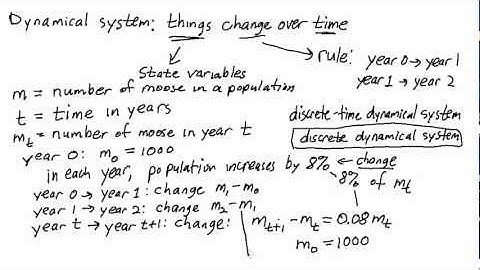 Dynamical system: things change over time
State variables
rule: year 0 → year 1
year 1 → year 2
m = number of moose in a population
t = time in years
m_t = number of moose in year t
discrete-time dynamical system
discrete dynamical system
year 0: m_0 = 1000
in each year, population increases by 8% ← change
8% of m_t
year 0 → year 1: change m_1 - m_0
year 1 → year 2: change m_2 - m_1
year t → year t+1: change:
m_{t+1} - m_t = 0.08 m_t
m_0 = 1000